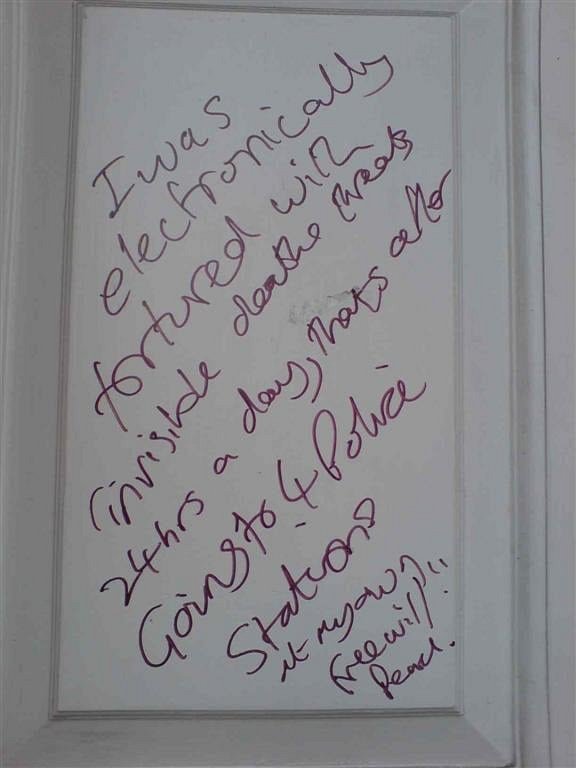 I was
electronically
tortured with
invisible deathe threats
24hrs a day, thats after
Going to 4 Police
Stations
my own
free will!!